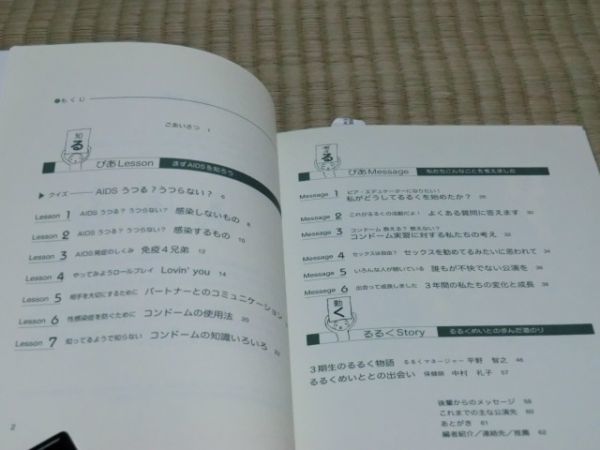 ●もくじ
ごあいさつ 1
知
る
ぴあLesson まずAIDSを知ろう
▶クイズ──AIDS うつる?うつらない? 6
Lesson 1 AIDS うつる? うつらない? 感染しないもの 8
Lesson 2 AIDS うつる? うつらない? 感染するもの 10
Lesson 3 AIDS発症のしくみ 免疫4兄弟 12
Lesson 4 やってみようロールプレイ Lovin' you 14
Lesson 5 相手を大切にするために パートナーとのコミュニケーション
Lesson 6 性感染症を防ぐために コンドームの使用法 20
Lesson 7 知ってるようで知らない コンドームの知識いろいろ 22
2
る
ぴあMessage 私たちこんなことを考えました
Message 1 ピア・エデュケーターになりたい!
私がどうしてるるくを始めたか? 28
Message 2 これがるるくの活動だよ! よくある質問に答えます 30
Message 3 コンドーム 教える? 教えない?
コンドーム実習に対する私たちの考え 33
Message 4 セックスは自由? セックスを勧めてるみたいに思われて 34
Message 5 いろんな人が聴いている 誰もが不快でない公演を 36
Message 6 出会って成長しました 3年間の私たちの変化と成長 38
動
く
るるくStory るるくめいとの歩んだ道のり
3期生のるるく物語 るるくマネージャー 平野 智之 46
るるくめいととの出会い 保健師 中村 礼子 57
後輩からのメッセージ 59
これまでの主な公演先 60
あとがき 61
編者紹介/連絡先/推薦 62